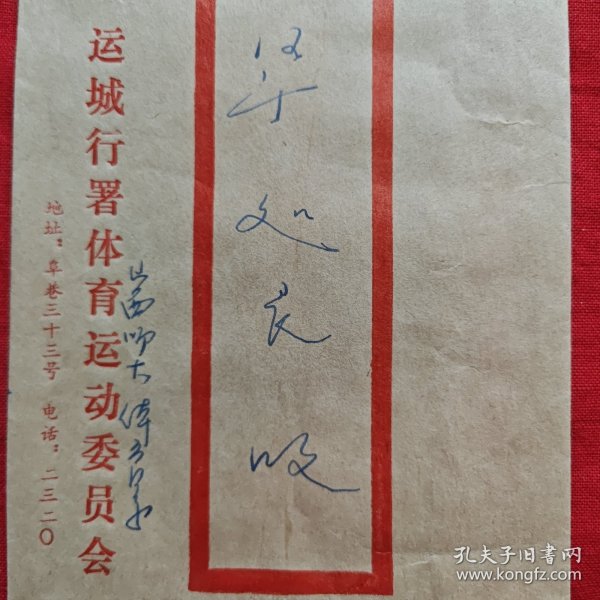 处长
收
山西师大体育系
运城行署体育运动委员会
地址：阜巷三十三号 电话：二三二〇
孔夫子旧书网
www.kongfz.com